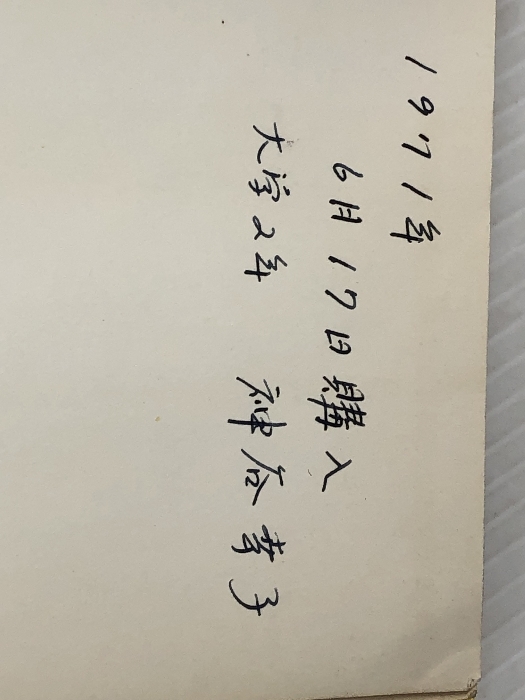 1971年
6月17日購入
大学2年 神谷孝子